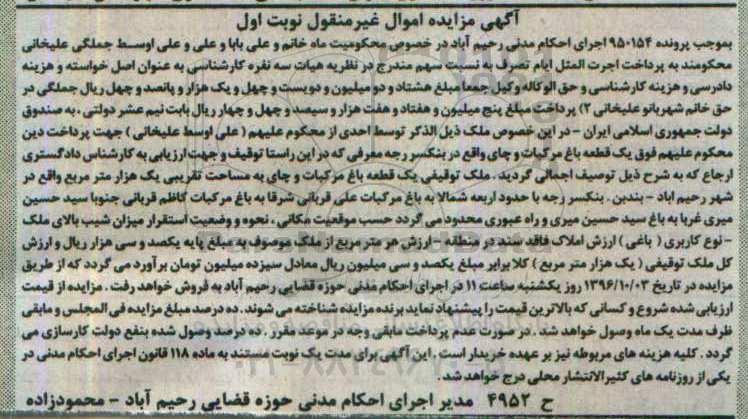 آگهی مزایده اموال غیرمنقول نوبت اول
بموجب پرونده ۹۵۰۱۵۴ اجرای احکام مدنی رحیم آباد در خصوص محکومیت ماه خانم و علی بابا و علی و علی اوسط جملگی علیخانی
محکومند به پرداخت اجرت المثل ایام تصرف به نسبت سهم مندرج در نظریه هیات سه نفره کارشناسی به عنوان اصل خواسته و هزینه
دادرسی و هزینه کارشناسی و حق الوکاله وکیل جمعا مبلغ هشتاد و دو میلیون و دویست و چهل و یک هزار و پانصد و چهل ریال جملگی در
حق خانم شهربانو علیخانی ۲) پرداخت مبلغ پنج میلیون و هفتاد و هفت هزار و سیصد و چهل و چهار ریال بابت نیم عشر دولتی ، به صندوق
دولت جمهوری اسلامی ایران - در این خصوص ملک ذیل الذکر توسط احدی از محکوم علیهم ( علی اوسط علیخانی ) جهت پرداخت دین
محکوم علیهم فوق یک قطعه باغ مرکبات و چای واقع در بنکسر رجه معرفی که در این راستا توقیف و جهت ارزیابی به کارشناس دادگستری
ارجاع که به شرح ذیل توصیف اجمالی گردید . ملک توقیفی یک قطعه باغ مرکبات و چای به مساحت تقریبی یک هزار متر مربع واقع در
شهر رحیم اباد - بندبن . بنکسر رجه با حدود اربعه شمالا به باغ مرکبات علی قربانی شرقا به باغ مرکبات کاظم قربانی جنوبا سید حسین
میری غربا به باغ سید حسین میری و راه عبوری محدود می گردد حسب موقعیت مکانی ، نحوه و وضعیت استقرار میزان شیب بالای ملک
- نوع کاربری ( باغی ) ارزش املاک فاقد سند در منطقه - ارزش هر متر مربع از ملک موصوف به مبلغ پایه یکصد و سی هزار ریال و ارزش
کل ملک توقیفی ( یک هزار متر مربع ) کلا برابر مبلغ یکصد و سی میلیون ریال معادل سیزده میلیون تومان برآورد می گردد که از طریق
مزایده در تاریخ ۱۳۹۶/۱۰/۰۳ روز یکشنبه ساعت ۱۱ در اجرای احکام مدنی حوزه قضایی رحیم آباد به فروش خواهد رفت . مزایده از قیمت
ارزیابی شده شروع و کسانی که بالاترین قیمت را پیشنهاد نماید برنده مزایده شناخته می شوند . ده درصد مبلغ مزایده فی المجلس و مابقی
ظرف مدت یک ماه وصول خواهد شد . در صورت عدم پرداخت مابقی وجه در موعد مقرر . ده درصد وصول شده بنفع دولت کارسازی می
گردد . کلیه هزینه های مربوطه نیز بر عهده خریدار است . این آگهی برای مدت یک نوبت مستند به ماده ۱۱۸ قانون اجرای احکام مدنی در
یکی از روزنامه های کثیرالانتشار محلی درج خواهد شد .
ح ۴۹۵۲ مدیر اجرای احکام مدنی حوزه قضایی رحیم آباد - محمودزاده